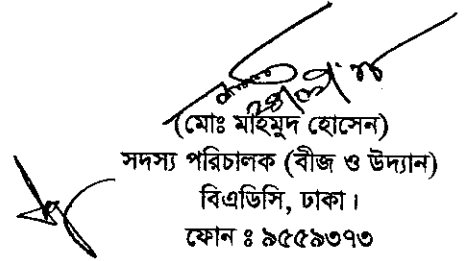 (মোঃ মাহমুদ হোসেন)
সদস্য পরিচালক (বীজ ও উদ্যান)
বিএডিসি, ঢাকা।
ফোন ঃ ৯৫৫৯৩৭৩